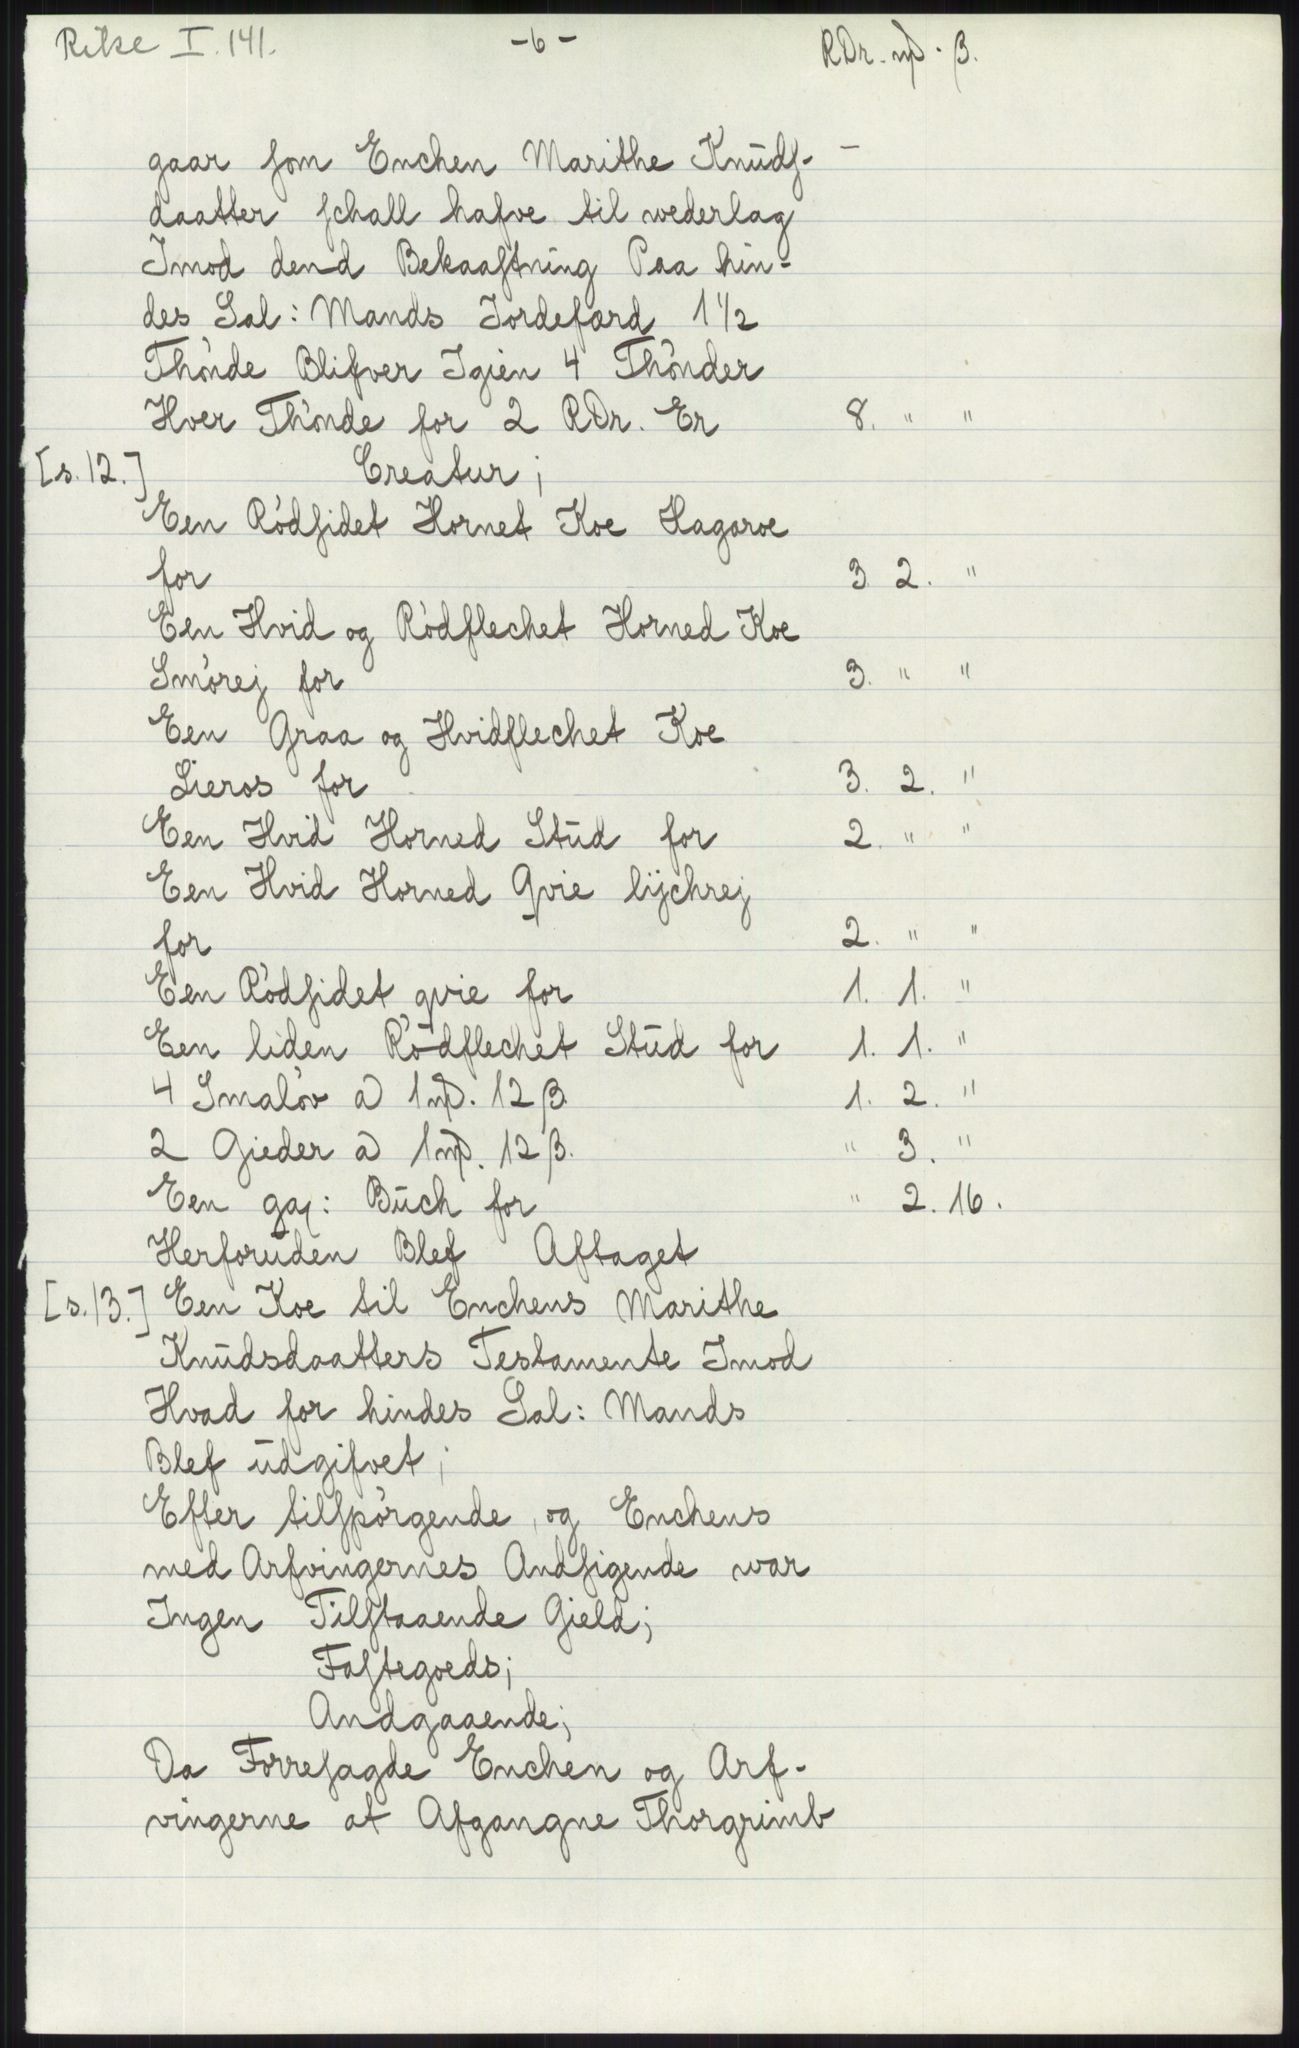 Rike I. 141. - 6 - RDr. mþ. β.
gaar som Enchen Marithe Knūds-
daatter schall hafve til wederlag
Imod dend Bekaastning Paa hin-
des Sal: Mands Jordefærd 1 1/2
Thønde Blifver Igien 4 Thønder
Hver Thønde for 2 RDr. Er 8. " "
[s. 12.] Creatur;
Een Rødsidet Hornet Koe Hagaroe
for 3. 2. "
Een Hvid og Rødflechet Horned Koe
Smørej for 3. " "
Een Graa og Hvidflechet Koe
Lieros for 3. 2. "
Een Hvid Horned Stūd for 2. " "
Een Hvid Horned Qvie lijchrej
for 2. " "
Een Rødsidet qvie for 1. 1. "
Een liden Rødflechet Stūd for 1. 1. "
4 Smaløv a 1 mþ. 12 β. 1. 2. "
2 Gieder a 1 mþ. 12 β. " 3. "
Een gal: Būch for " 2. 16.
Herforūden Blef Aftaget
[s. 13.] Een Koe til Enchens Marithe
Knūdsdaatters Testamente Imod
Hvad for hindes Sal: Mands
Blef ūdgifvet;
Efter tilspørgende, og Enchens
med Arfvingernes Andsigende war
Ingen Tilstaaende Gield;
Fastegoeds;
Andgaaende;
Da Forresagde Enchen og Arf-
vingerne at Afgangne Thorgrimb